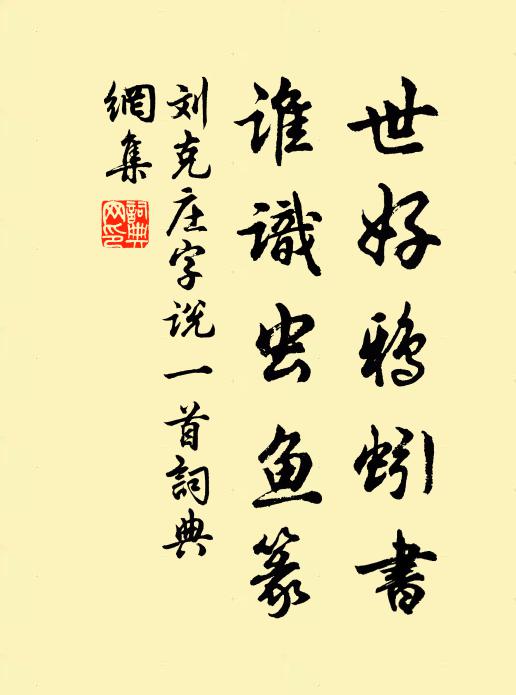 世好鸦蚓書
谁識虫鱼篆
刘克庄字说一首詞典
網集
詞典网印